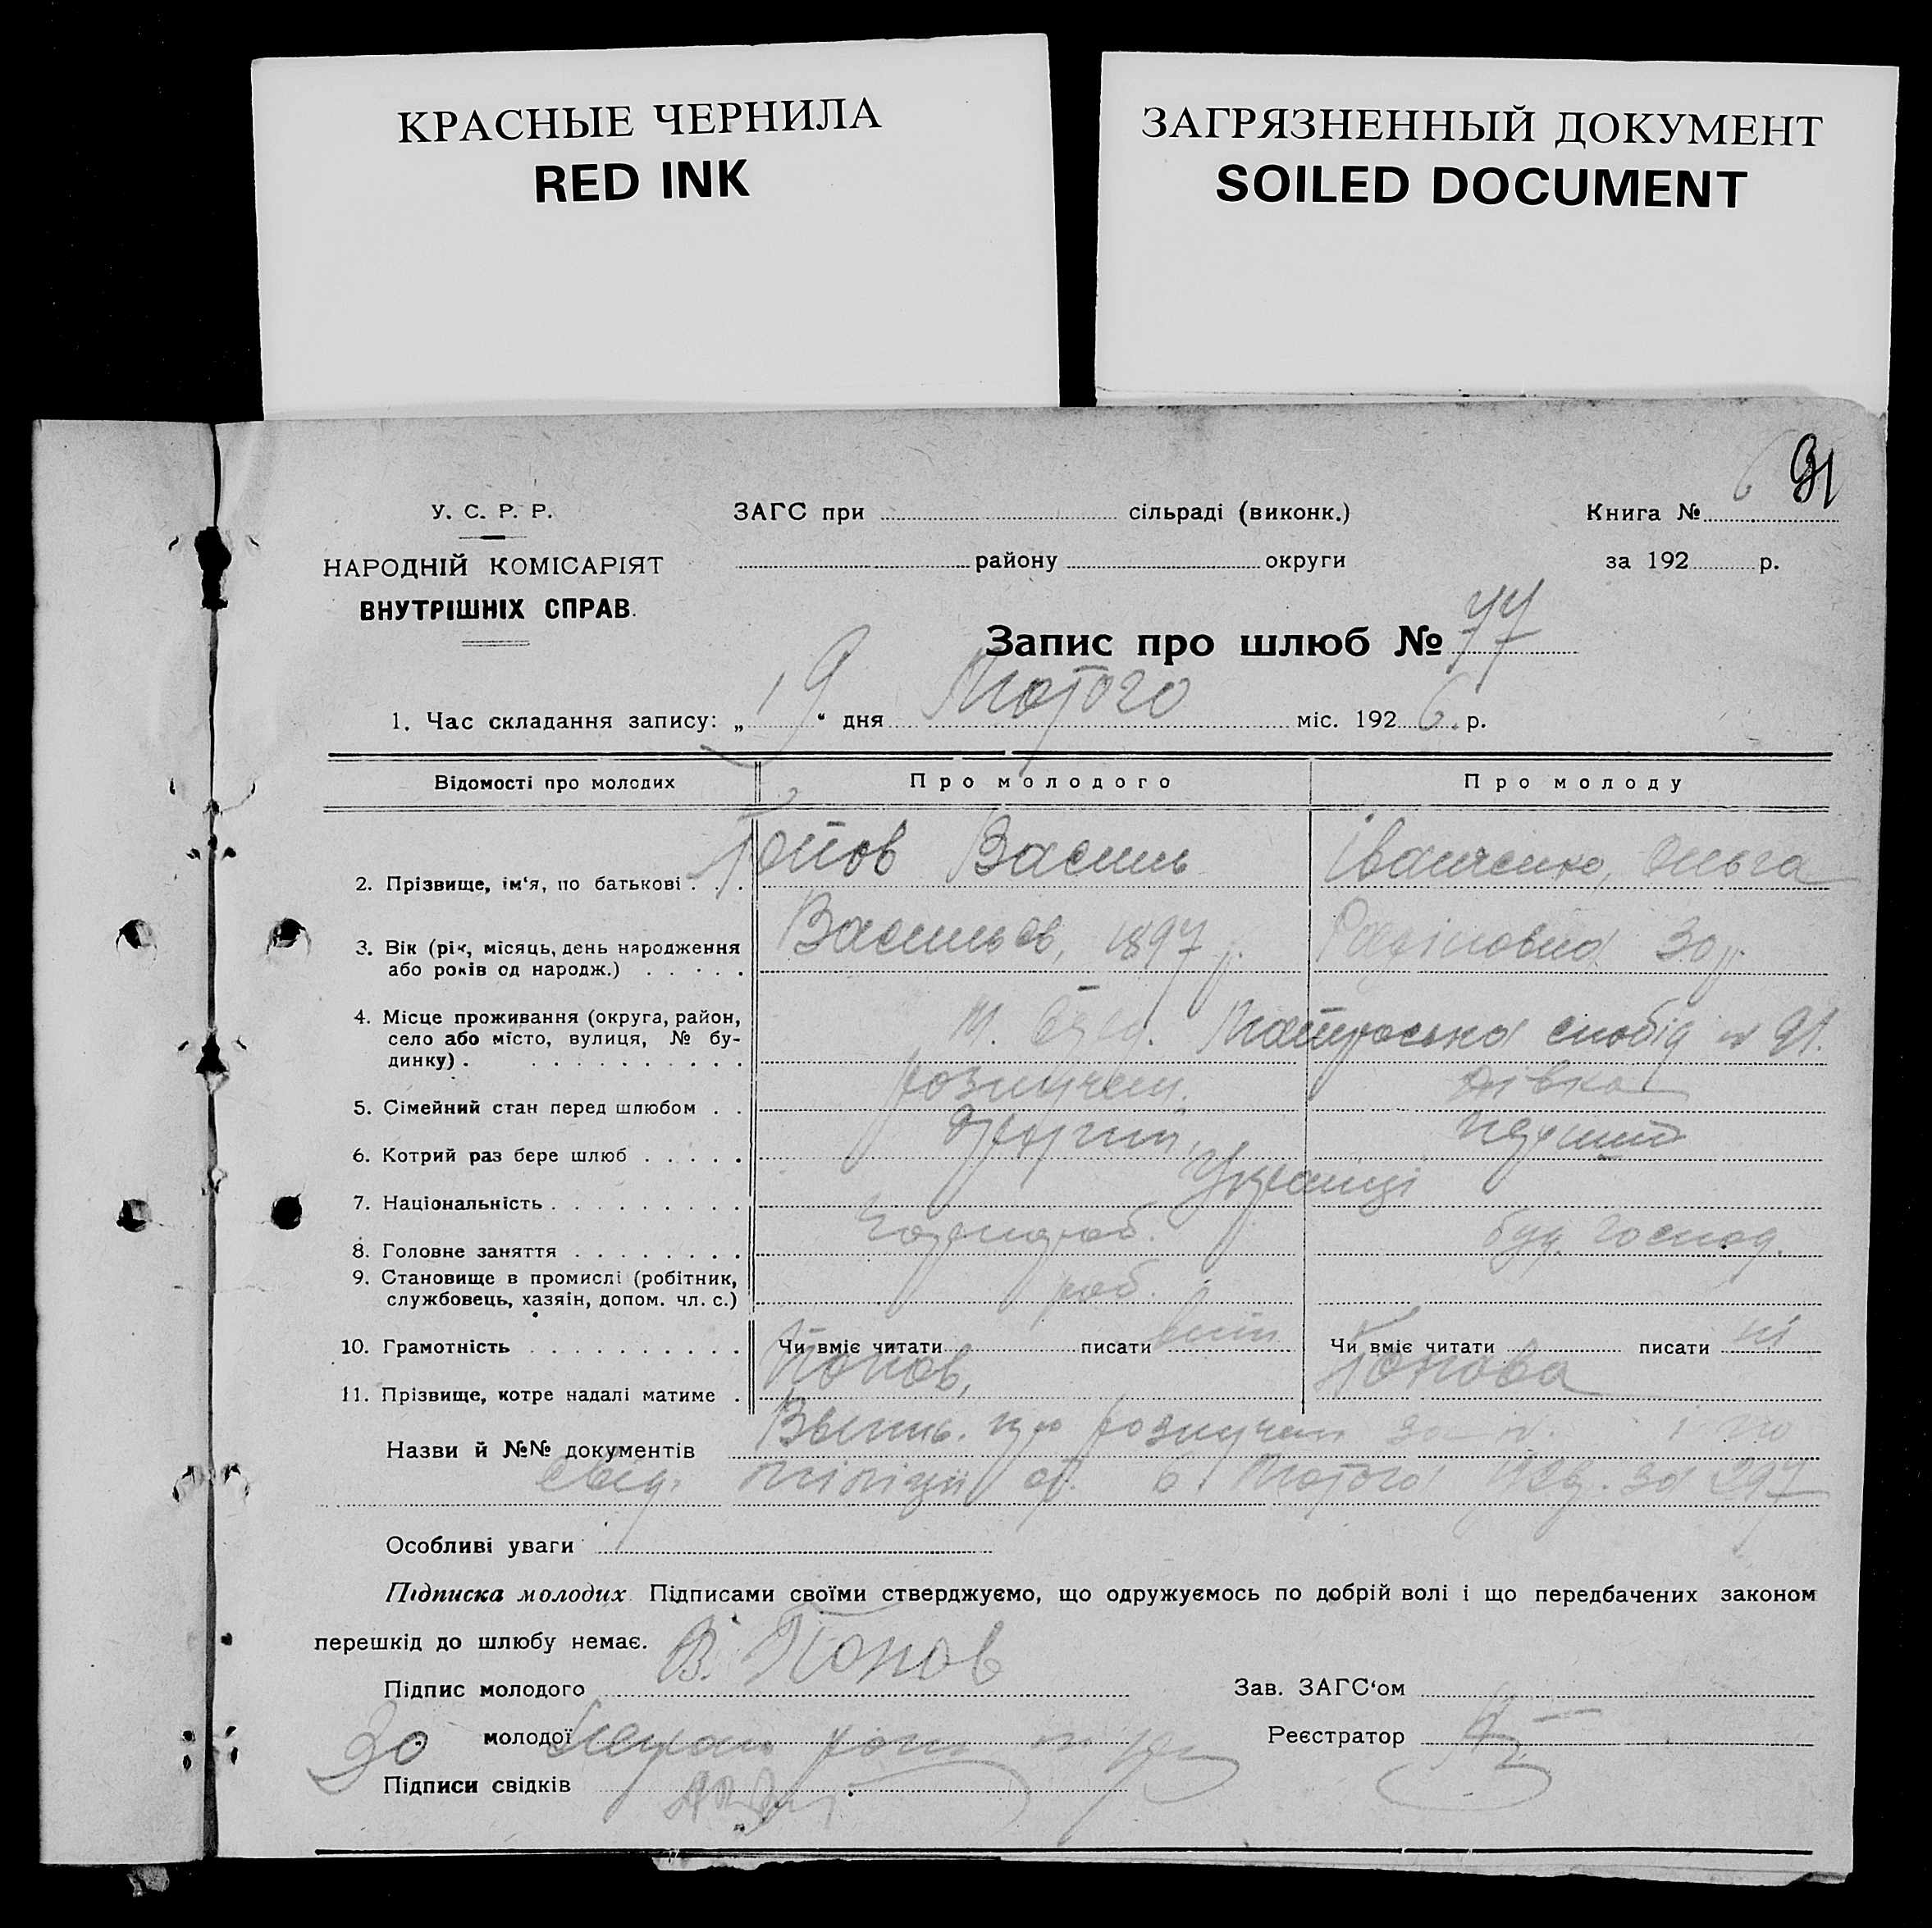 КРАСНЫЕ ЧЕРНИЛА
RED INK
ЗАГРЯЗНЕННЫЙ ДОКУМЕНТ
SOILED DOCUMENT
91
У. С. Р. Р.
НАРОДНІЙ КОМІСАРІЯТ
ВНУТРІШНІХ СПРАВ.
ЗАГС при сільраді (виконк.)
району округи
Книга №
за 192 р.
Запис про шлюб № 77
1. Час складання запису: „19“ дня Лютого міс. 1926 р.
Відомості про молодих Про молодого Про молоду
2. Прізвище, ім‘я, по батькові . . . Попов Василь Іванченко, Ольга
3. Вік (рік, місяць, день народження Васильов, 1897 р. 30 р.
або років од народж.) . . . . .
4. Місце проживання (округа, район,
село або місто, вулиця, № бу-
динку) . . . . . . . . . . . м. слобід № 91.
5. Сімейний стан перед шлюбом . . розлучен. дівка
6. Котрий раз бере шлюб . . . . . другий перший
7. Національність . . . . . . . . . Українці
8. Головне заняття . . . . . . . . чорнороб. господ.
9. Становище в промислі (робітник,
службовець, хазяін, допом. чл. с.) роб.
10. Грамотність . . . . . . . . . . Чи вміє читати писати вміє Чи вміє читати писати ні
11. Прізвище, котре надалі матиме . Попов, Попова
Назви й №№ документів про розлучен за №
свід. міліції 6 Лютого за 297
Особливі уваги
Підписка молодих Підписами своїми стверджуємо, що одружуємось по добрій волі і що передбачених законом
перешкід до шлюбу немає.
Підпис молодого В. Попов Зав. ЗАГС‘ом
молодої Реєстратор
Підписи свідків